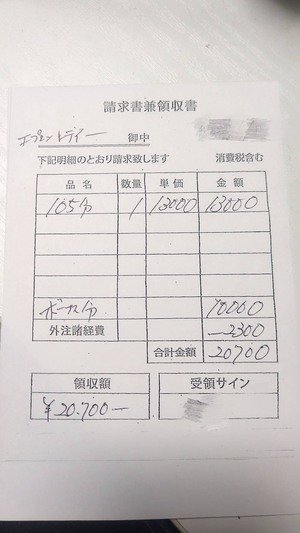 請求書兼領収書
エプロントデイー 御中
下記明細のとおり請求致します 消費税含む
品名 数量 単価 金額
105分 1 13000 13000
ボーナス分 10000
外注諸経費 -2300
合計金額 20700
領収額 受領サイン
¥20.700-